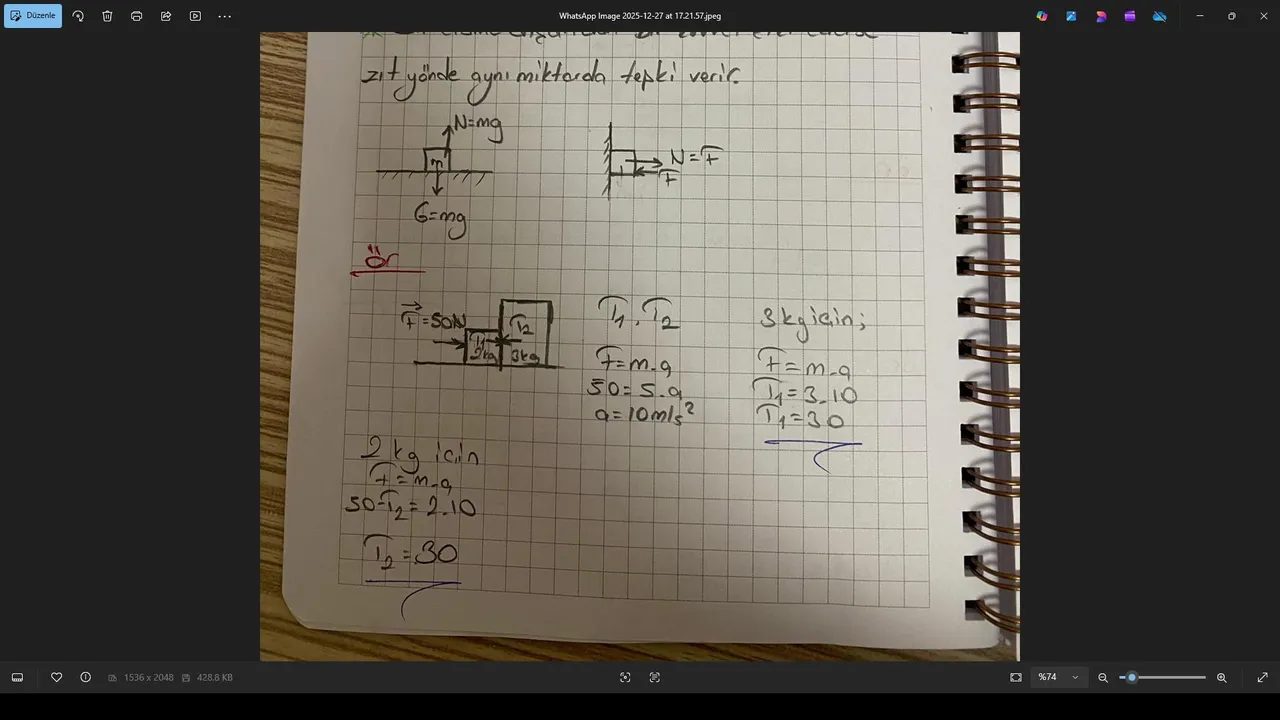 Düzenle
WhatsApp Image 2025-12-27 at 17.21.57.jpeg
zıt yönde aynı miktarda tepki verir.
N=mg
m
G=mg
N=F
F
ör
F=50N
T1
2kg
T2
3kg
T1, T2
F=m.a
50=5.a
a=10m/s²
3kg için;
F=m.a
T1=3.10
T1=30
2 kg için
F=m.a
50-T2=2.10
T2=30
1536 x 2048
428.8 KB
%74